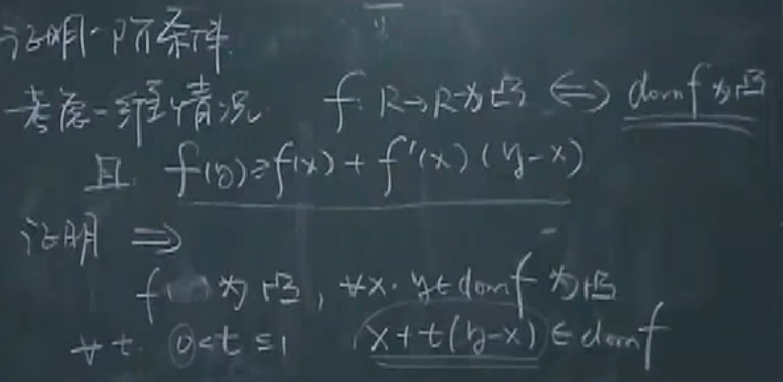 证明一阶条件
考虑一维情况 f: R→R为凸 ⇔ domf为凸
且 f(y)≥f(x)+f'(x)(y-x)
证明 ⇒
f 为凸, ∀x, y∈domf 为凸
∀t, 0<t≤1 x+t(y-x)∈domf